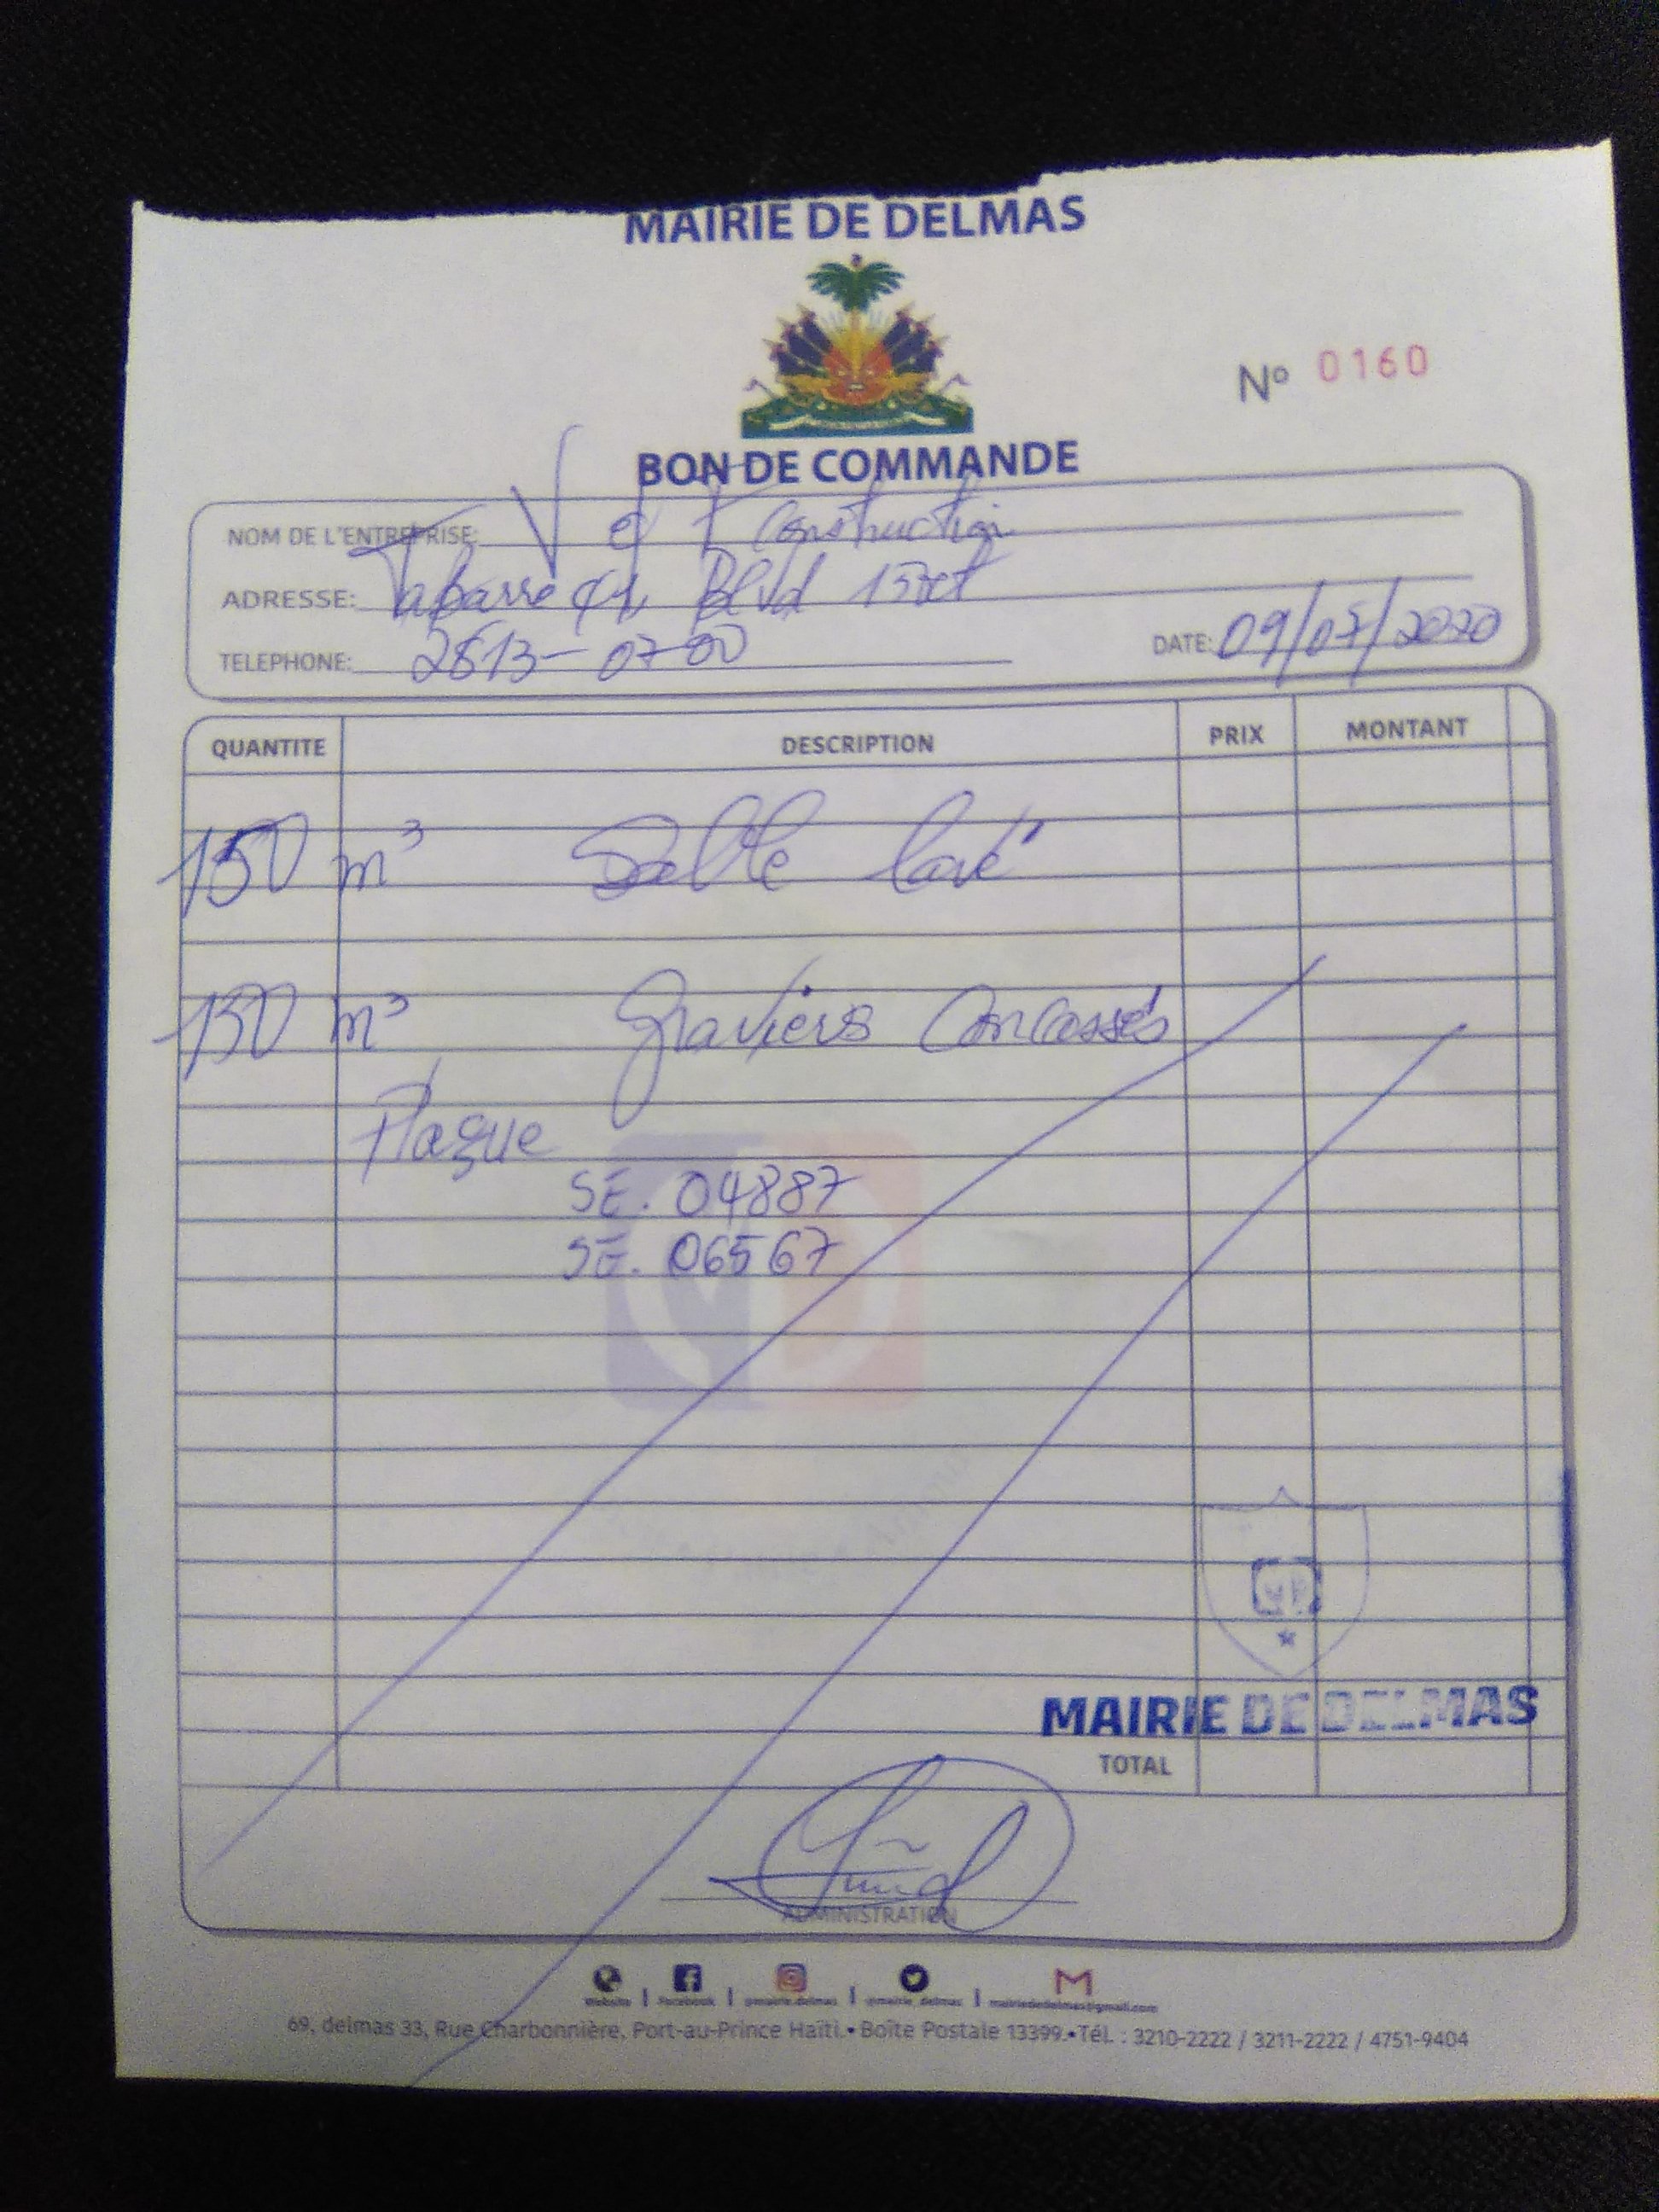 MAIRIE DE DELMAS
Nº 0160
BON DE COMMANDE
NOM DE L'ENTREPRISE: V et F Construction
ADRESSE: Tabarre Blvd 15 Oct
TELEPHONE: 2813-07-00
DATE: 09/07/2020
QUANTITE DESCRIPTION PRIX MONTANT
150 m³ Sable lavé
150 m³ Graviers Concassés
Plaque
SE. 04887
SE. 06567
MAIRIE DE DELMAS
TOTAL
ADMINISTRATION
Website | Facebook | @mairie_delmas | @mairie_delmas | mairiededelmas@gmail.com
69, delmas 33, Rue Charbonnière, Port-au-Prince Haïti.•Boîte Postale 13399.•Tél. : 3210-2222 / 3211-2222 / 4751-9404